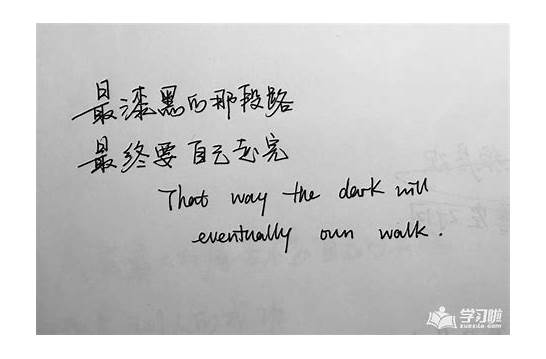 最漆黑的那段路
最终要自己走完
That way the dark will
eventually own walk.
学习啦
xuexila.com